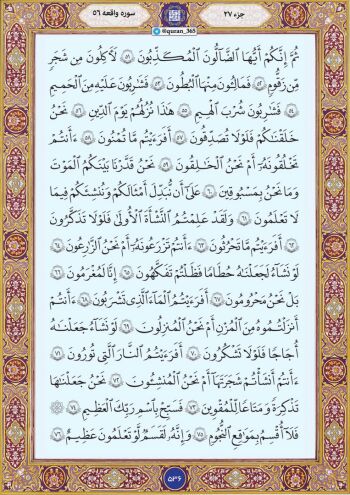 سوره واقعه ۵۶
جزء ۲۷
@quran_365
ثُمَّ إِنَّكُمْ أَيُّهَا ٱلضَّآلُّونَ ٱلْمُكَذِّبُونَ ۝٥١ لَأٓكِلُونَ مِن شَجَرٍ
مِّن زَقُّومٍ ۝٥٢ فَمَالِـُٔونَ مِنْهَا ٱلْبُطُونَ ۝٥٣ فَشَٰرِبُونَ عَلَيْهِ مِنَ ٱلْحَمِيمِ
۝٥٤ فَشَٰرِبُونَ شُرْبَ ٱلْهِيمِ ۝٥٥ هَٰذَا نُزُلُهُمْ يَوْمَ ٱلدِّينِ ۝٥٦ نَحْنُ
خَلَقْنَٰكُمْ فَلَوْلَا تُصَدِّقُونَ ۝٥٧ أَفَرَءَيْتُم مَّا تُمْنُونَ ۝٥٨ ءَأَنتُمْ
تَخْلُقُونَهُۥٓ أَمْ نَحْنُ ٱلْخَٰلِقُونَ ۝٥٩ نَحْنُ قَدَّرْنَا بَيْنَكُمُ ٱلْمَوْتَ
وَمَا نَحْنُ بِمَسْبُوقِينَ ۝٦٠ عَلَىٰٓ أَن نُّبَدِّلَ أَمْثَٰلَكُمْ وَنُنشِئَكُمْ فِى مَا
لَا تَعْلَمُونَ ۝٦١ وَلَقَدْ عَلِمْتُمُ ٱلنَّشْأَةَ ٱلْأُولَىٰ فَلَوْلَا تَذَكَّرُونَ
۝٦٢ أَفَرَءَيْتُم مَّا تَحْرُثُونَ ۝٦٣ ءَأَنتُمْ تَزْرَعُونَهُۥٓ أَمْ نَحْنُ ٱلزَّٰرِعُونَ ۝٦٤
لَوْ نَشَآءُ لَجَعَلْنَٰهُ حُطَٰمًا فَظَلْتُمْ تَفَكَّهُونَ ۝٦٥ إِنَّا لَمُغْرَمُونَ ۝٦٦
بَلْ نَحْنُ مَحْرُومُونَ ۝٦٧ أَفَرَءَيْتُمُ ٱلْمَآءَ ٱلَّذِى تَشْرَبُونَ ۝٦٨ ءَأَنتُمْ
أَنزَلْتُمُوهُ مِنَ ٱلْمُزْنِ أَمْ نَحْنُ ٱلْمُنزِلُونَ ۝٦٩ لَوْ نَشَآءُ جَعَلْنَٰهُ
أُجَاجًا فَلَوْلَا تَشْكُرُونَ ۝٧٠ أَفَرَءَيْتُمُ ٱلنَّارَ ٱلَّتِى تُورُونَ ۝٧١
ءَأَنتُمْ أَنشَأْتُمْ شَجَرَتَهَآ أَمْ نَحْنُ ٱلْمُنشِـُٔونَ ۝٧٢ نَحْنُ جَعَلْنَٰهَا
تَذْكِرَةً وَمَتَٰعًا لِّلْمُقْوِينَ ۝٧٣ فَسَبِّحْ بِٱسْمِ رَبِّكَ ٱلْعَظِيمِ ۝٧٤
فَلَآ أُقْسِمُ بِمَوَٰقِعِ ٱلنُّجُومِ ۝٧٥ وَإِنَّهُۥ لَقَسَمٌ لَّوْ تَعْلَمُونَ عَظِيمٌ ۝٧٦
۵۳۶